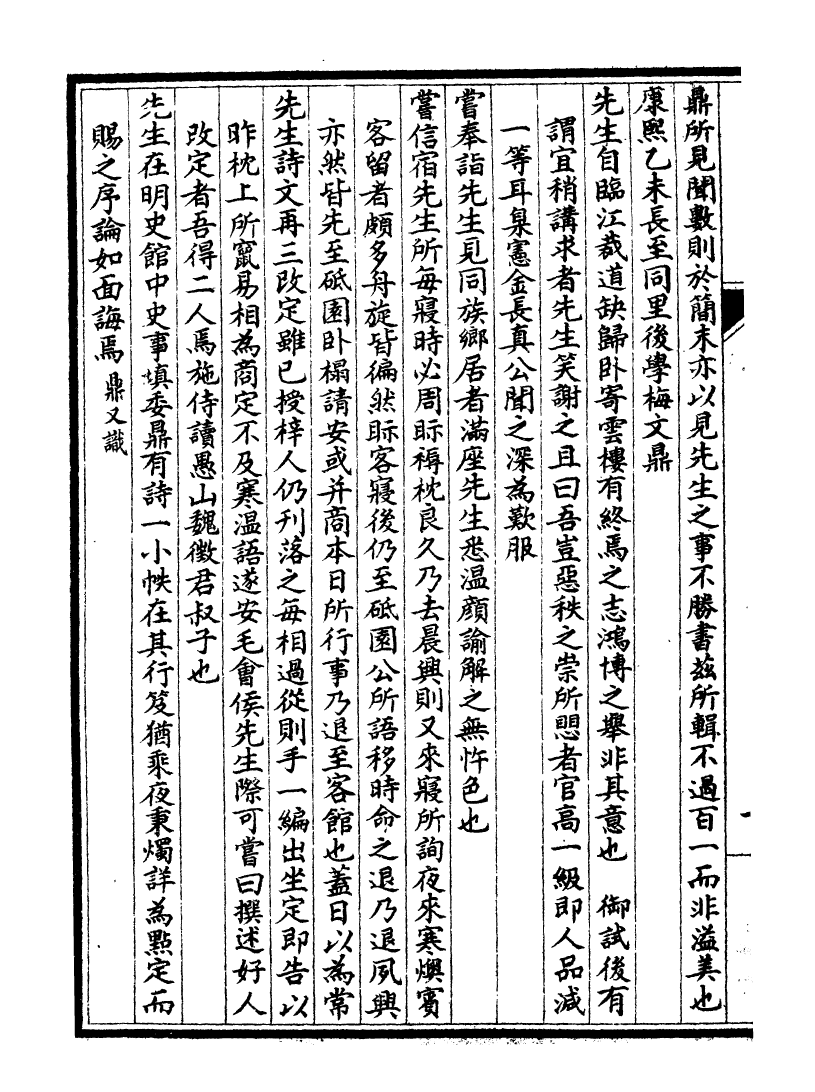 鼎所見聞數則於簡末亦以見先生之事不勝書茲所輯不過百一而非溢美也
康熙乙未長至同里後學梅文鼎
先生自臨江裁道缺歸卧寄雲樓有終焉之志鴻博之舉非其意也　御試後有
謂宜稍講求者先生笑謝之且曰吾豈惡秩之崇所愳者官高一級即人品減
一等耳臬憲金長真公聞之深為歎服
嘗奉詣先生見同族鄉居者滿座先生悉溫顔諭解之無忤色也
嘗信宿先生所每寢時必周眎裯枕良久乃去晨興則又來寢所詢夜來寒燠賓
客留者頗多舟旋皆徧然眎客寢後仍至砥園公所語移時命之退乃退夙興
亦然皆先至砥園卧榻請安或并商本日所行事乃退至客館也蓋日以為常
先生詩文再三改定雖已授梓人仍刋落之每相過從則手一編出坐定即告以
昨枕上所竄易相為商定不及寒溫語遂安毛會侯先生際可嘗曰撰述好人
改定者吾得二人焉施侍讀愚山魏徵君叔子也
先生在明史館中史事填委鼎有詩一小帙在其行笈猶乘夜秉燭詳為㸃定而
賜之序論如面誨焉 鼎又識